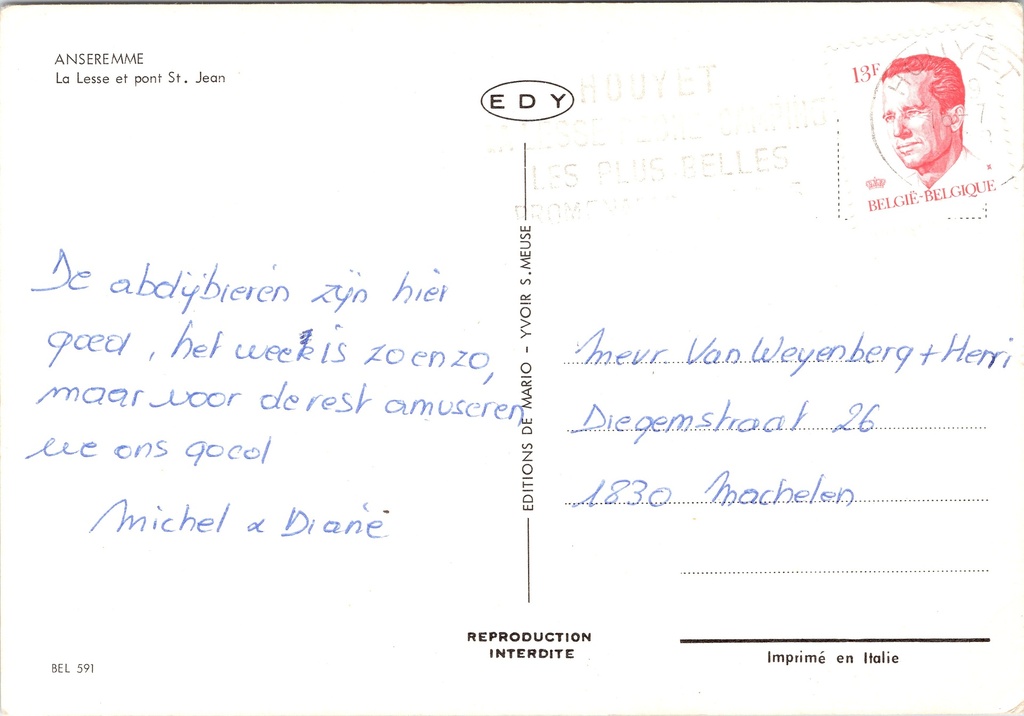 ANSEREMME
La Lesse et pont St. Jean
EDY
HOUYET
LES PLUS BELLES
HOUYET
13F
BELGIË-BELGIQUE
De abdijbieren zijn hier
goed, het week is zo en zo,
maar voor de rest amuseren
we ons goed
Michel & Diane
EDITIONS DE MARIO - YVOIR S. MEUSE
Mevr Van Weyenberg + Henri
Diegemstraat 26
1830 Machelen
REPRODUCTION
INTERDITE
Imprimé en Italie
BEL 591